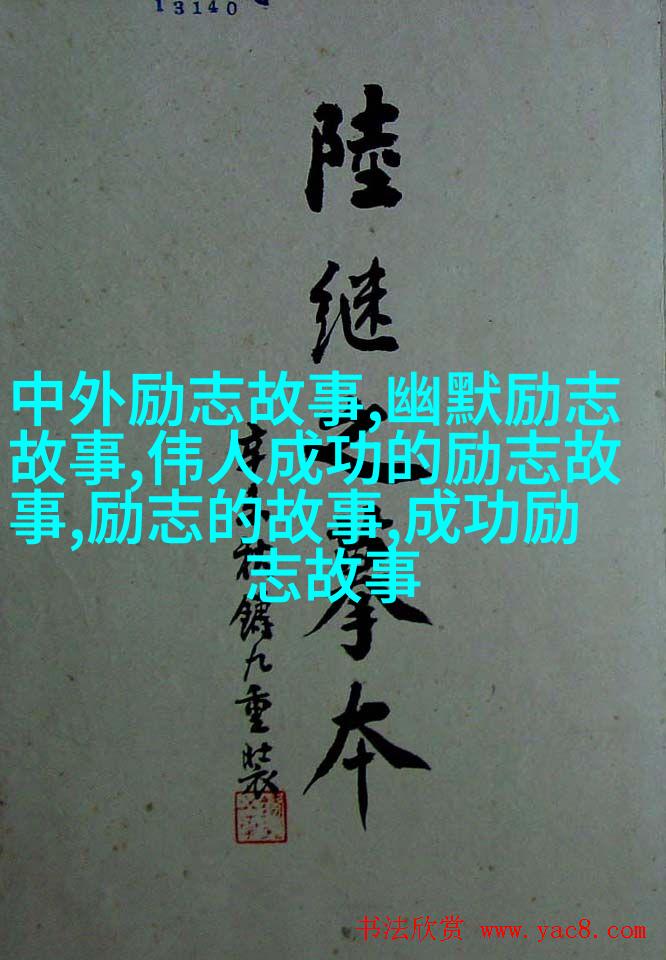 13140
陸继之摹本
中外励志故事,幽默励志
故事,伟人成功的励志故
事,励志的故事,成功励
志故事
鑄九重裝
书法欣赏 www.yac8.com